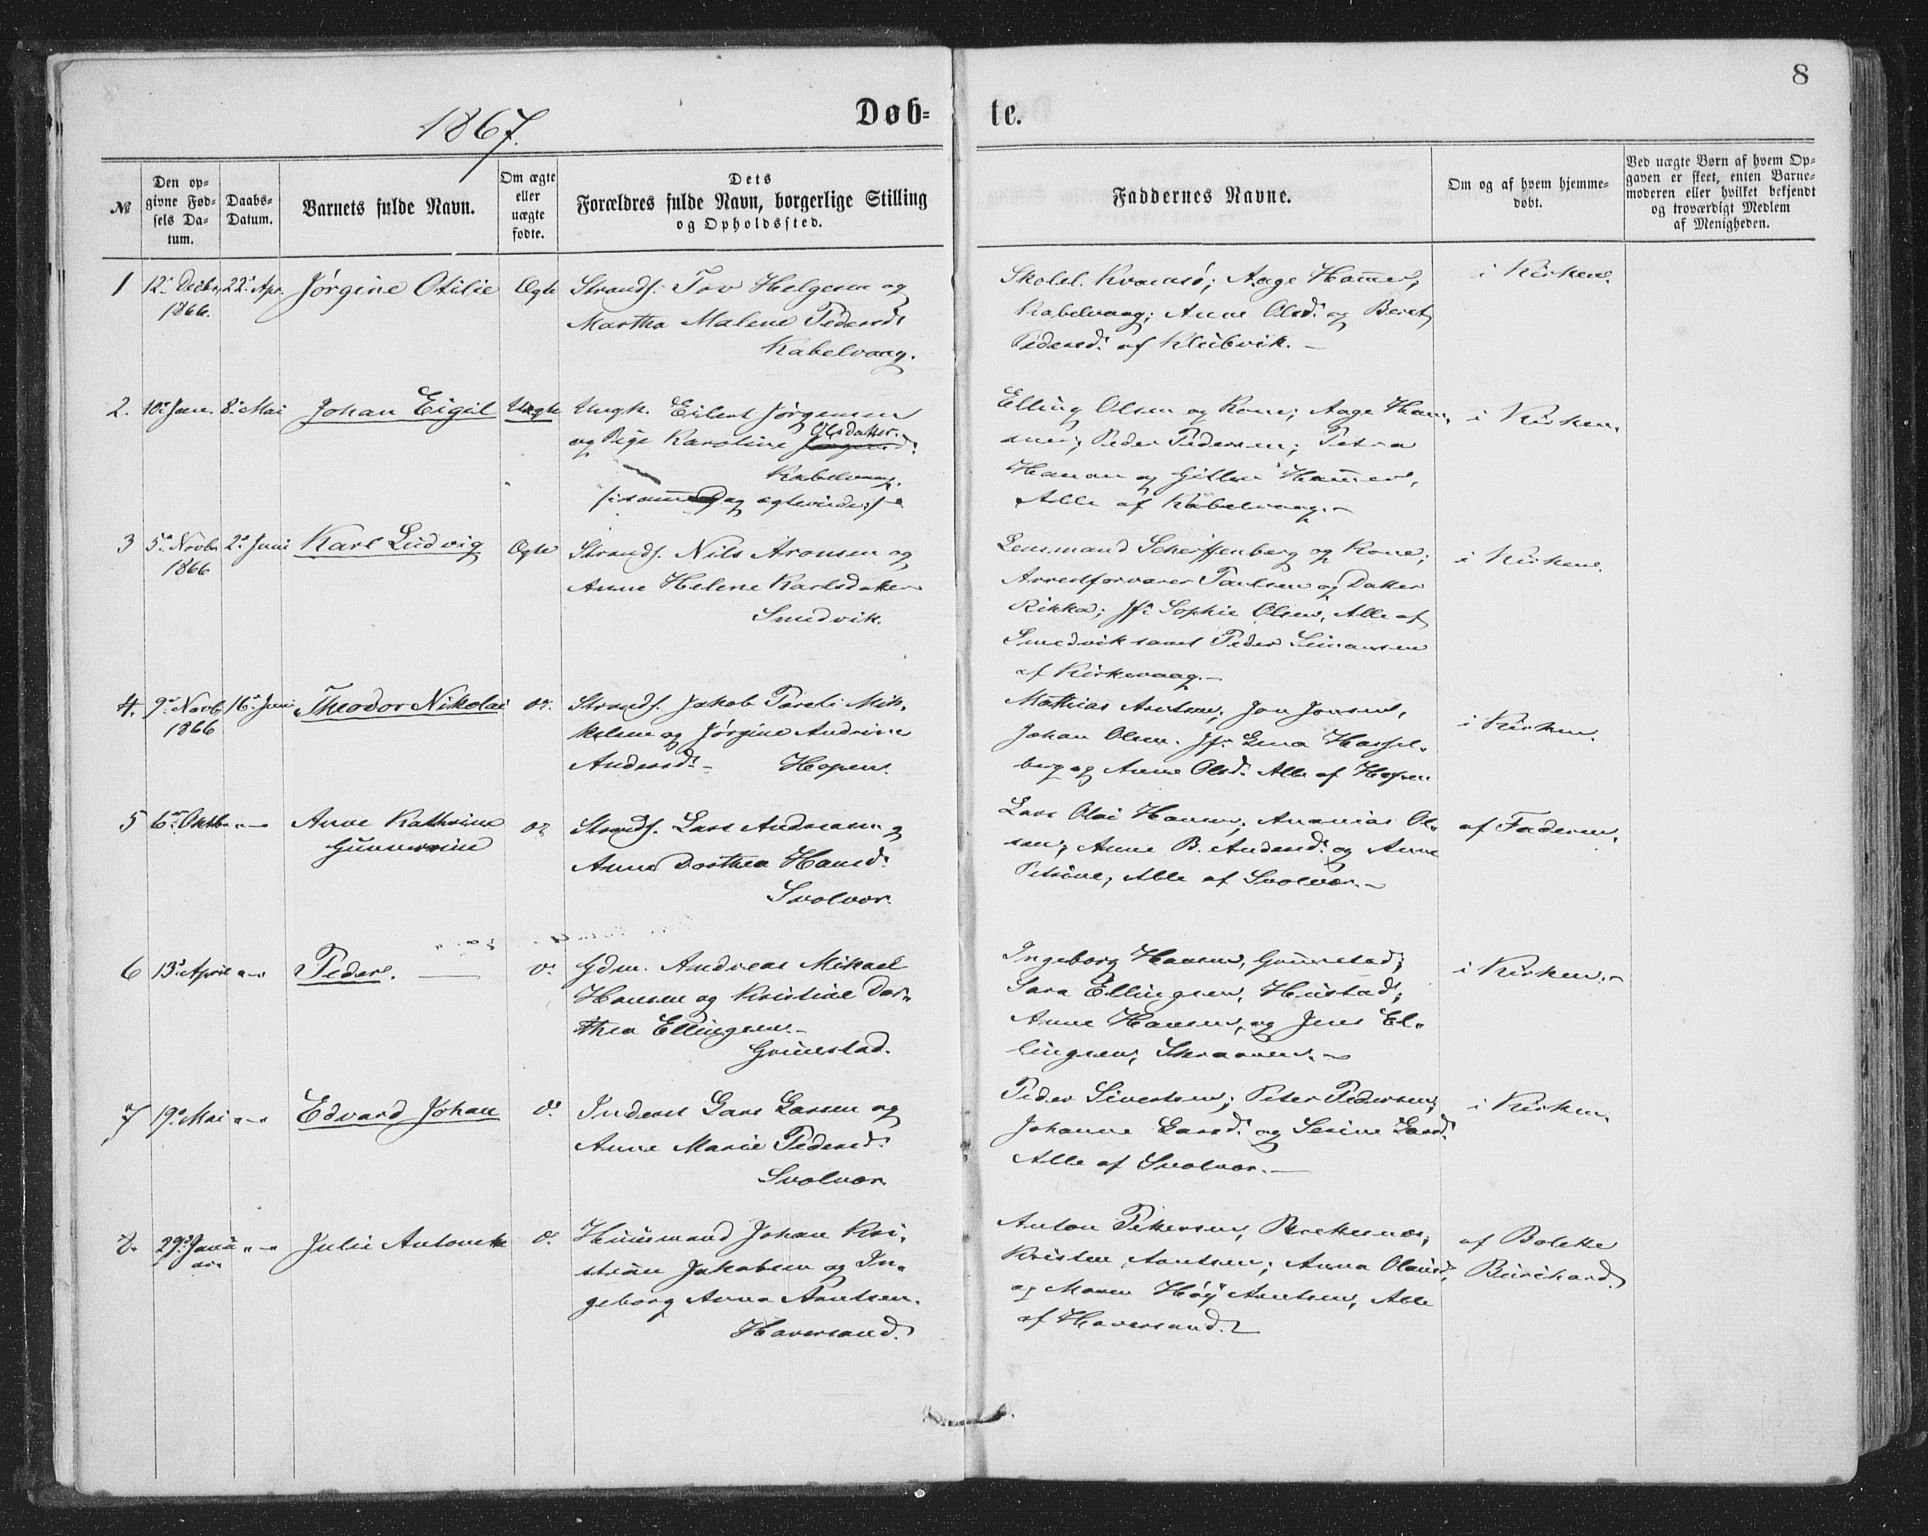 8
1867.
Døb= te.
№
Den op-
givne Fød-
sels Da-
tum.
Daabs-
Datum.
Barnets fulde Navn.
Om ægte
eller
uægte
fødte.
Dets
Forældres fulde Navn, borgerlige Stilling
og Opholdssted.
Faddernes Navne.
Om og af hvem hjemme-
døbt.
Ved uægte Børn af hvem Op-
gaven er skeet, enten Barne-
moderen eller hvilket bekjendt
og troværdigt Medlem
af Menigheden.
1 12te Decbr 22de Apr. Jørgine Otilie Ægte Strands. Tov Helgesen og
1866. Martha Malene Pedersd.
Kabelvaag.
Skolel. Kvamsø; Aage Hammer,
Kabelvaag; Anne Olsd. og Beret
Pedersd. af Kleibvik. —
i Kirken.
2. 10de Jan. 8de Mai Johan Eigil Uægte Ungk. Eilert Jørgensen
og Pige Karoline Olsdatter.
Kabelvaag.
Elling Olsen og Kone; Aage Ham-
mer; Peder Pedersen; Petra
Hanan og Hammer,
Alle af Kabelvaag. —
i Kirken.
3 5te Novbr 2den Juni Karl Ludvig Ægte Strands. Nils Aronsen og
1866 Anne Helene Karlsdatter
Smedvik.
Lensmand Scheffenberg og Kone;
Arrestforvarer Paulsen og Datter
Rikka; Jfr. Sophie Olsen, Alle af
Smedvik samt Peder Simonsen
af Kirkevaag. —
i Kirken.
4. 9de Novb. 16de Juni Theodor Nikolai do. Strands. Jakob Pareli Mik-
1866 kelsen og Jørgine Andrine
Andersd. — Hopen.
Mathias Arntsen, Jon Jonsen,
Johan Olsen. Jfr. Lena Hassel-
berg og Anne Olsd. Alle af Hopen
i Kirken.
5 6te Oktb. "—" Anne Kathrine do. Strands. Lars Andreassen og
Gunnerine Anne Dorthea Hansd.
Svolvær.
Lars Olai Hansen; Ananias Ol-
sen; Anne B. Andersd. og Anne
Petrine, Alle af Svolvær. —
af Faderen.
6 13de April "—" Peder. — do. Gdm. Andreas Mikael
Hansen og Kristine Dor-
thea Ellingsen. —
Grimstad.
Ingeborg Hansen, Grimstad;
Sara Ellingsen, Hustad;
Anne Hansen, og Jens El-
lingsen, Skraaven. —
i Kirken. —
7 19de Mai "—" Edvard Johan do. Inderst Lars Larsen og
Anne Marie Pedersd.
Svolvær.
Peder Sivertsen; Peter Pedersen;
Johanne Larsd. og Serine Larsd.
Alle af Svolvær. —
i Kirken.
8. 29de Janu- "—" Julie Antonette do. Huusmand Johan Kri-
ar stian Jakobsen og In-
geborg Anna Arntsen.
Haversand.
Anton Petersen, Brettesnæs;
Kristen Arntsen; Anna Olausd.
og Maren Høy Arntsen, Alle
af Haversand. —
af Bolette
Burchard.